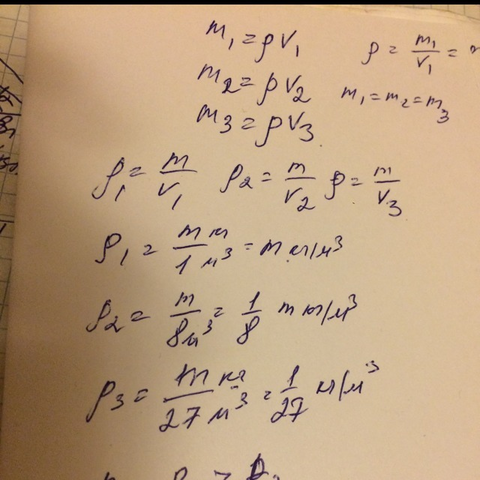 m₁ = ρV₁ ρ = m₁/V₁ =
m₂ = ρV₂ m₁ = m₂ = m₃
m₃ = ρV₃
ρ₁ = m/V₁ ρ₂ = m/V₂ ρ = m/V₃
ρ₁ = m кг/1 м³ = m кг/м³
ρ₂ = m/8 м³ = 1/8 m кг/м³
ρ₃ = m кг/27 м³ = 1/27 кг/м³